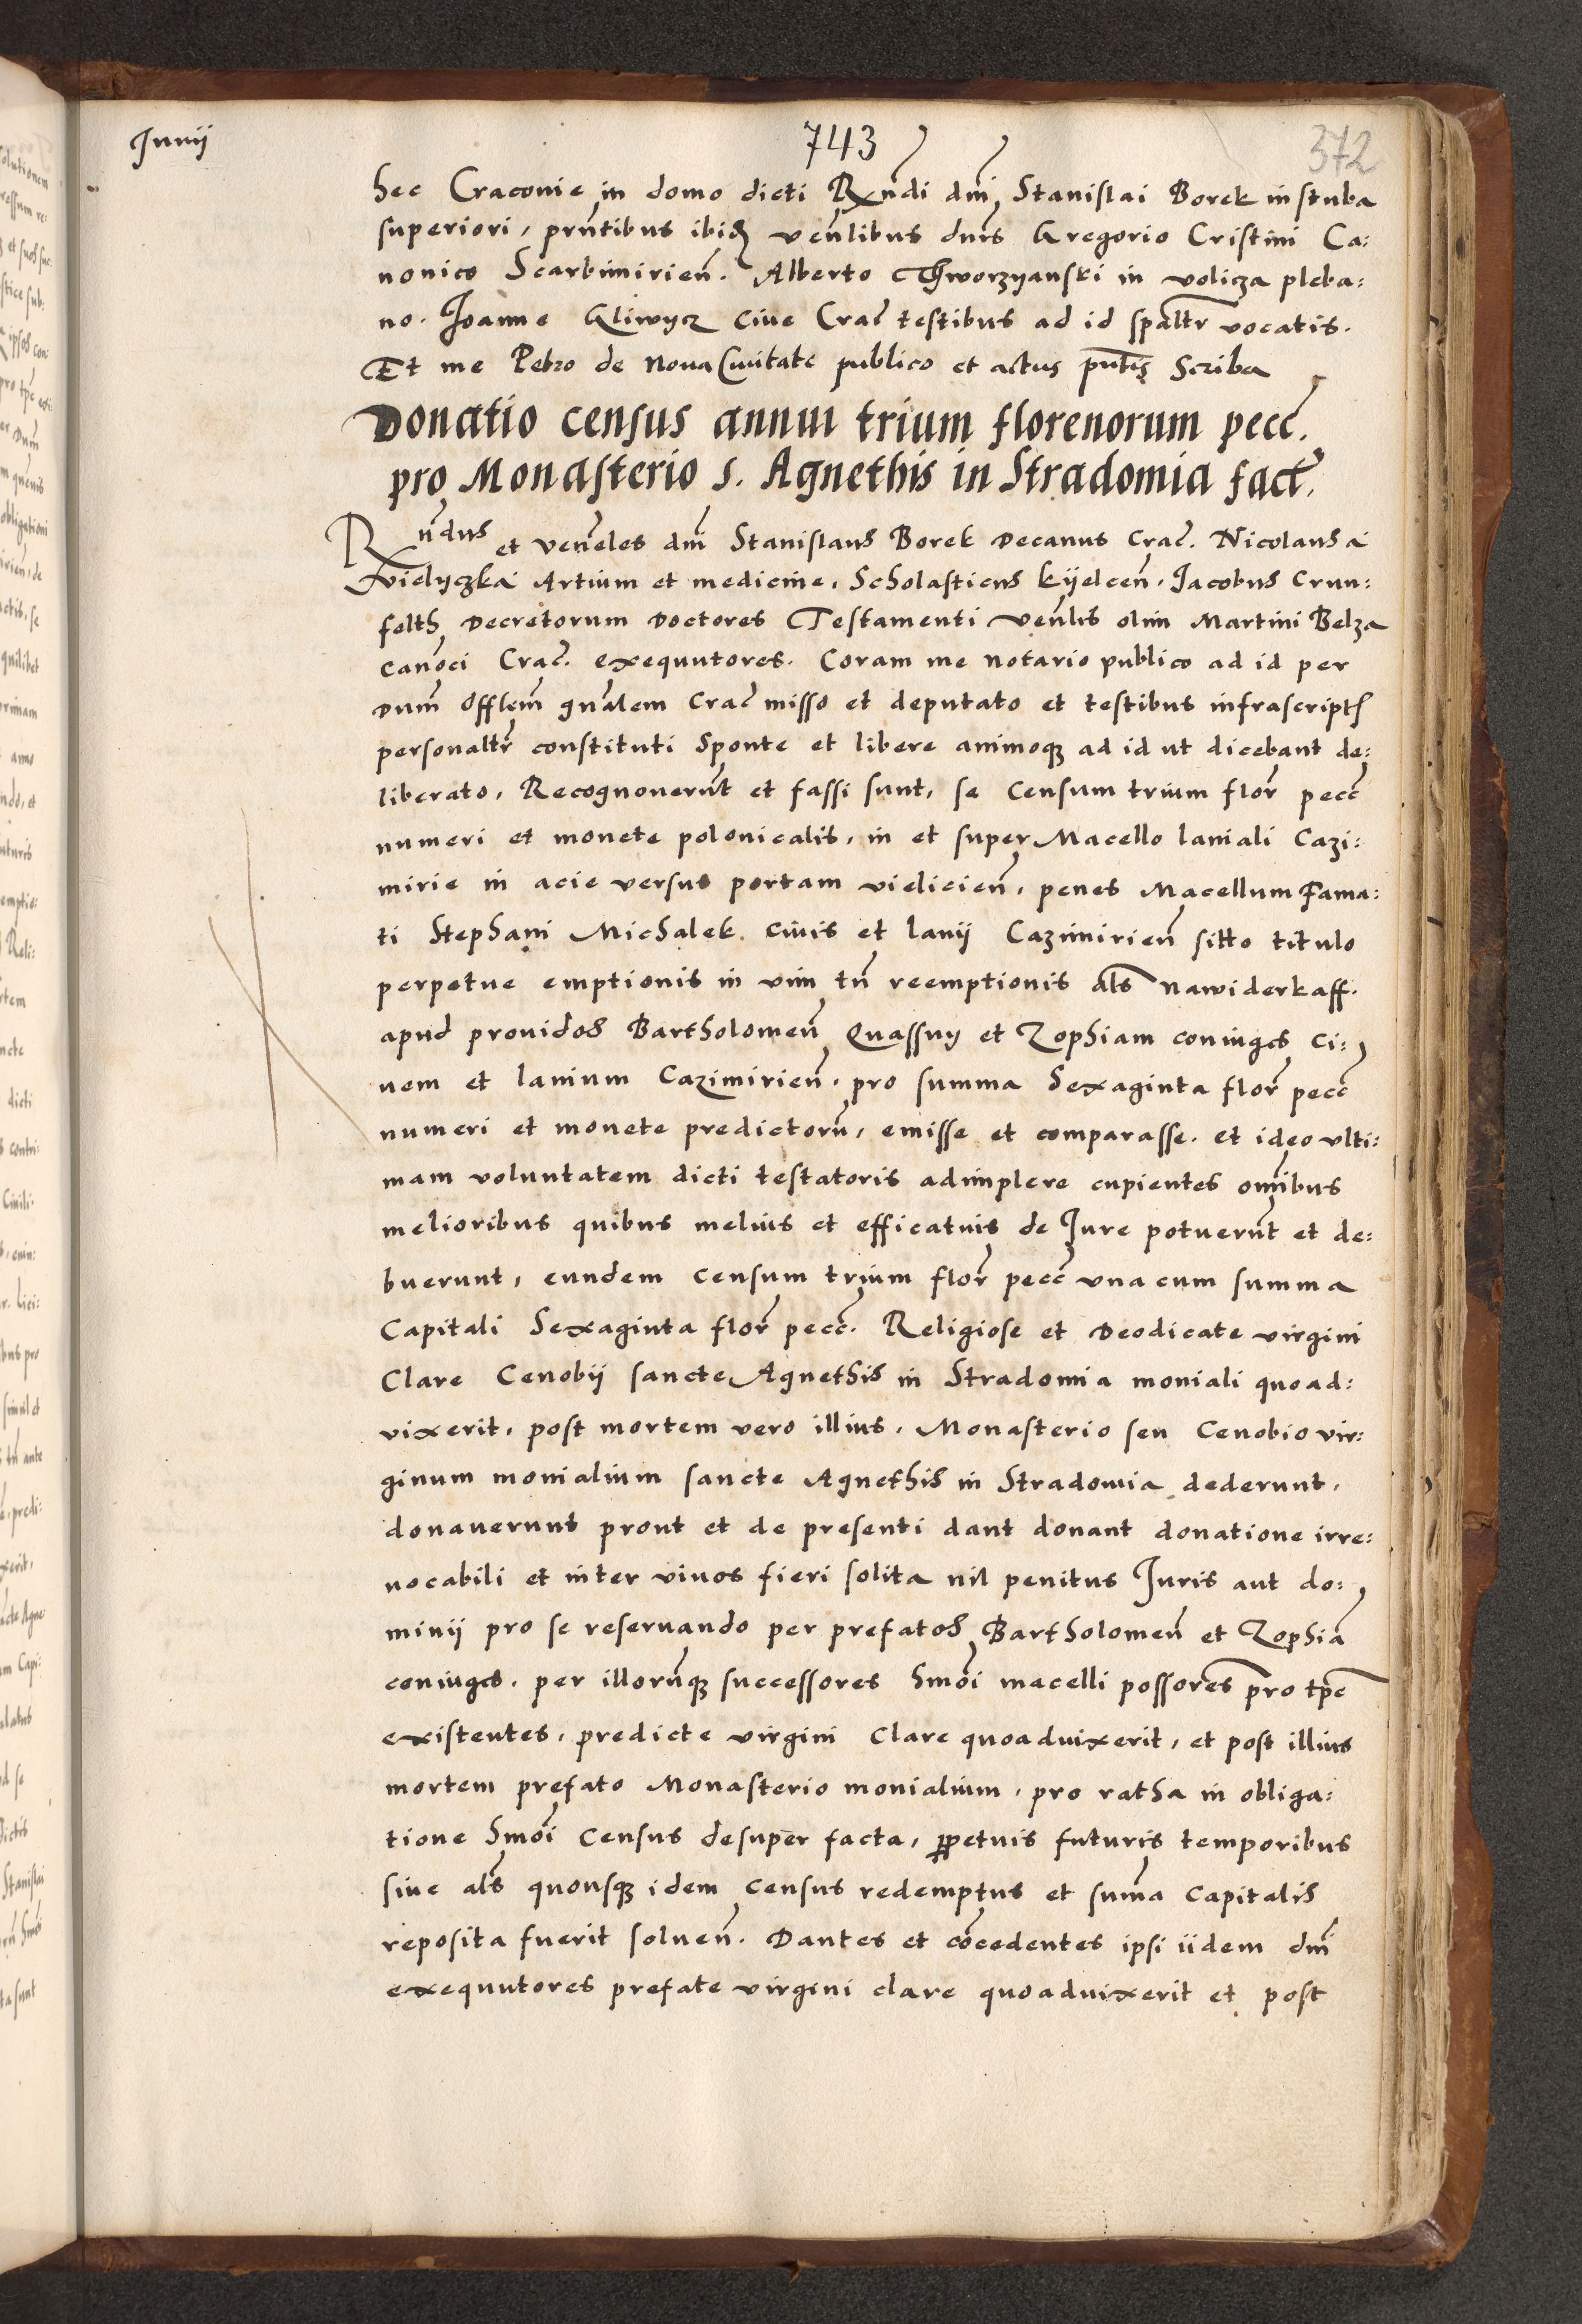 Junij
743
372
hec Craconie in domo dicti Rxndi dni Stanislai Borek in stuba
superiori, pñtibus ibidẽ veñlibus dnis Gregorio Cristini Ca:
nonico Scarbimirieñ. Alberto Thworzyanski in volicza pleba:
no. Joanne Gliwycz Ciue Crac̃ testibus ad id sp̃altr̃ vocatis.
Et me Petro de Noua Ciuitate publico et actus pñtis Scriba
Donatio census annui trium florenorum pecc̃.
pro Monasterio s. Agnethis in Stradomia fact̃.
Rxñdus et veñeles dñi Stanislaus Borek Decanus Crac̃. Nicolaus a
Vielyczka Artium et medicine, Scholasticus Kijelceñ. Jacobus Crun:
felth Decretorum Doctores Testamenti veñlis olim Martini Belza
cañoci Crac̃. exequutores. Coram me notario publico ad id per
Dum̃ Offlem̃ gñalem Crac̃ misso et deputato et testibus infrascript̃
personaltr̃ constituti sponte et libere animoqȝ ad id ut dicebant de:
liberato, Recognouerũt et fassi sunt, se Censum trium flor̃ pecc̃
numeri et monete polonicalis, in et super Macello laniali Cazi:
mirie in acie versus portam vielicieñ, penes Macellum Fama:
ti Stephani Michalek ciuis et lanij Cazimirieñ sitto titulo
perpetue emptionis in vim tñ reemptionis als̃ nawiderkaff.
apud prouidos Bartholomeũ Quassny et Zophiam coniuges ci:
uem et lanium Cazimirieñ. pro summa Sexaginta flor̃ pecc̃
numeri et monete predictorũ, emisse et comparasse. et ideo vlti:
mam voluntatem dicti testatoris adimplere cupientes om̃ibus
melioribus quibus melius et efficatius de Jure potuerũt et de:
buerunt, eundem censum trium flor̃ pecc̃ vna cum summa
Capitali Sexaginta flor̃ pecc̃. Religiose et Deodicate virgini
Clare Cenobij sancte Agnethis in Stradomia moniali quoad:
vixerit, post mortem vero illius, Monasterio seu Cenobio vir:
ginum monialium sancte Agnethis in Stradomia dederunt,
donauerunt prout et de presenti dant donant donatione irre:
uocabili et inter viuos fieri solita nil penitus Juris aut do:
minij pro se reseruando per prefatos Bartholomeũ et Zophiã
coniuges. per illorũqȝ successores hmõi macelli poss̃ores pro tpe
existentes, predicte virgini Clare quoaduixerit, et post illius
mortem prefato Monasterio monialium, pro ratha in obliga:
tione hmõi Census desuper facta, ꝑpetuis futuris temporibus
siue als̃ quousqȝ idem census redemptus et sum̃a capitalis
reposita fuerit solueñ. Dantes et cõcedentes ipsi iidem dñi
exequutores prefate virgini clare quoaduixerit et post